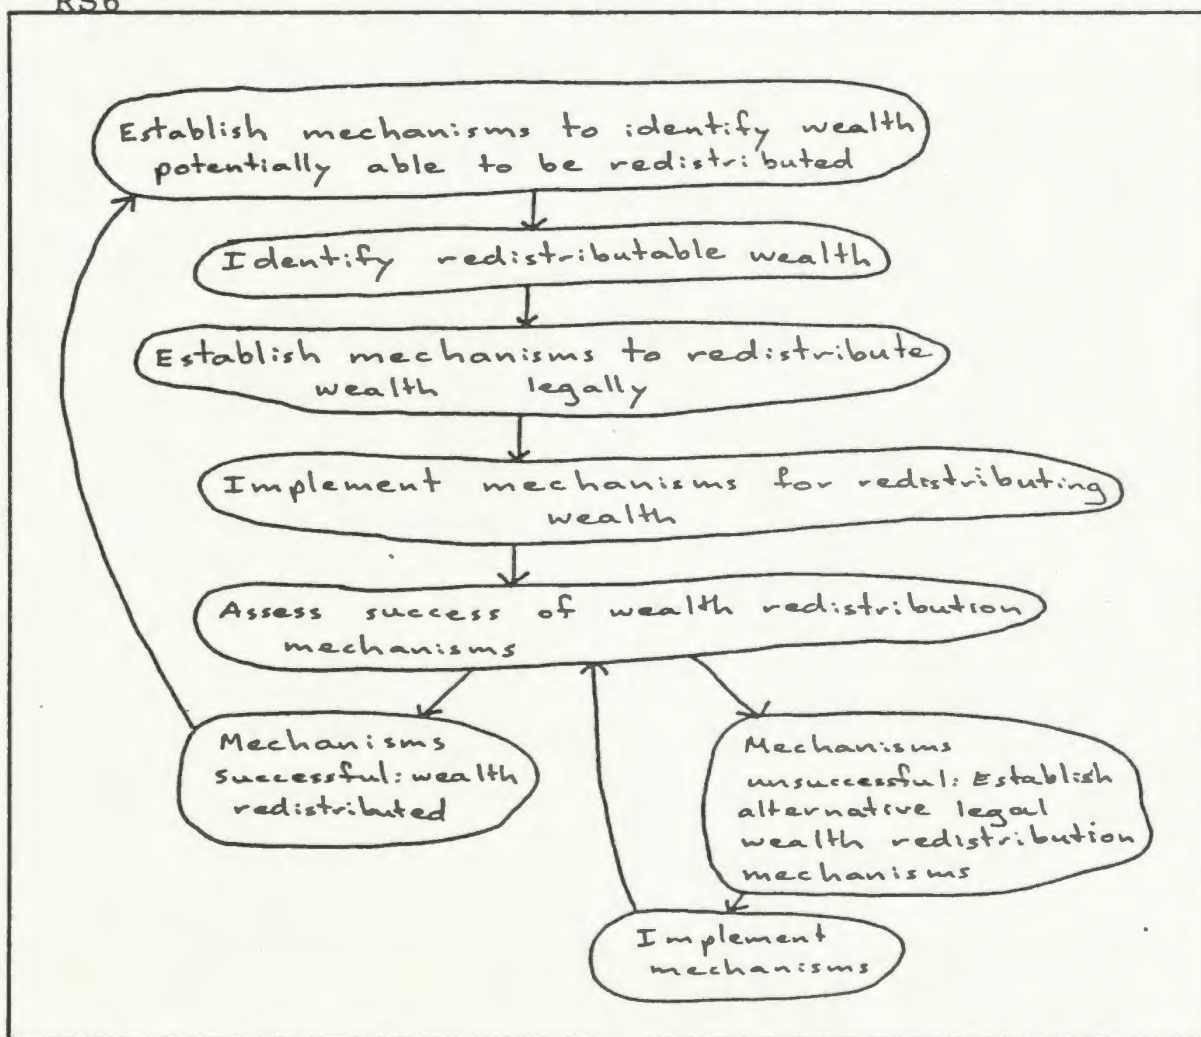 RS6
Establish mechanisms to identify wealth
potentially able to be redistributed
Identify redistributable wealth
Establish mechanisms to redistribute
wealth legally
Implement mechanisms for redistributing
wealth
Assess success of wealth redistribution
mechanisms
Mechanisms
successful: wealth
redistributed
Mechanisms
unsuccessful: Establish
alternative legal
wealth redistribution
mechanisms
Implement
mechanisms